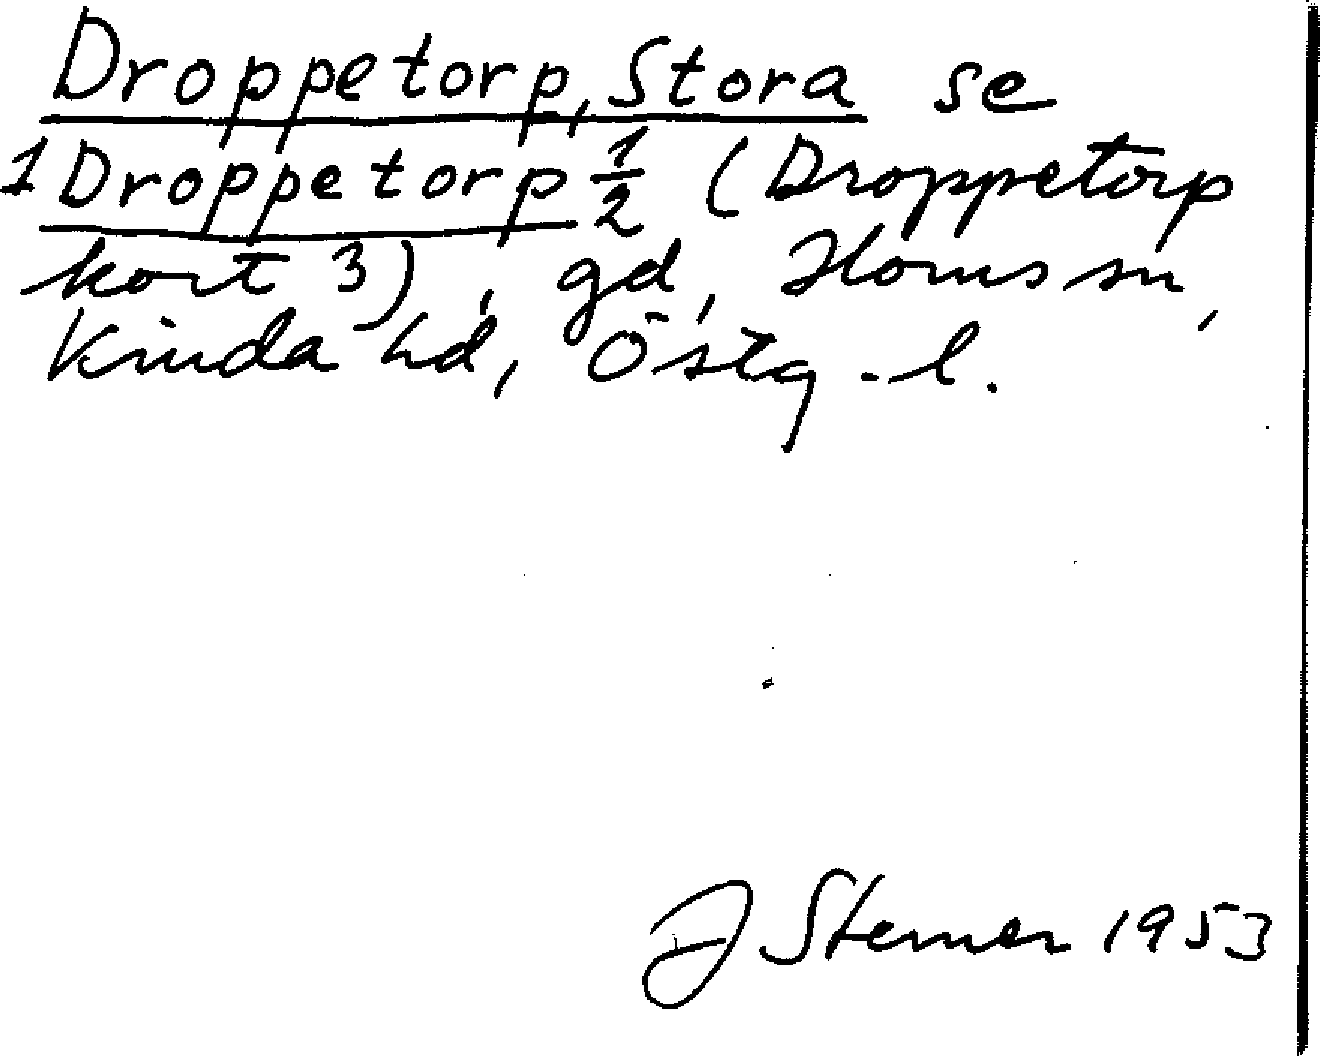 Droppetorp, Stora se
1 Droppetorp 1/2 (Droppetorp
kort 3), gd, Horns sn,
Kinda hd, Östg.l.
J Sterner 1953